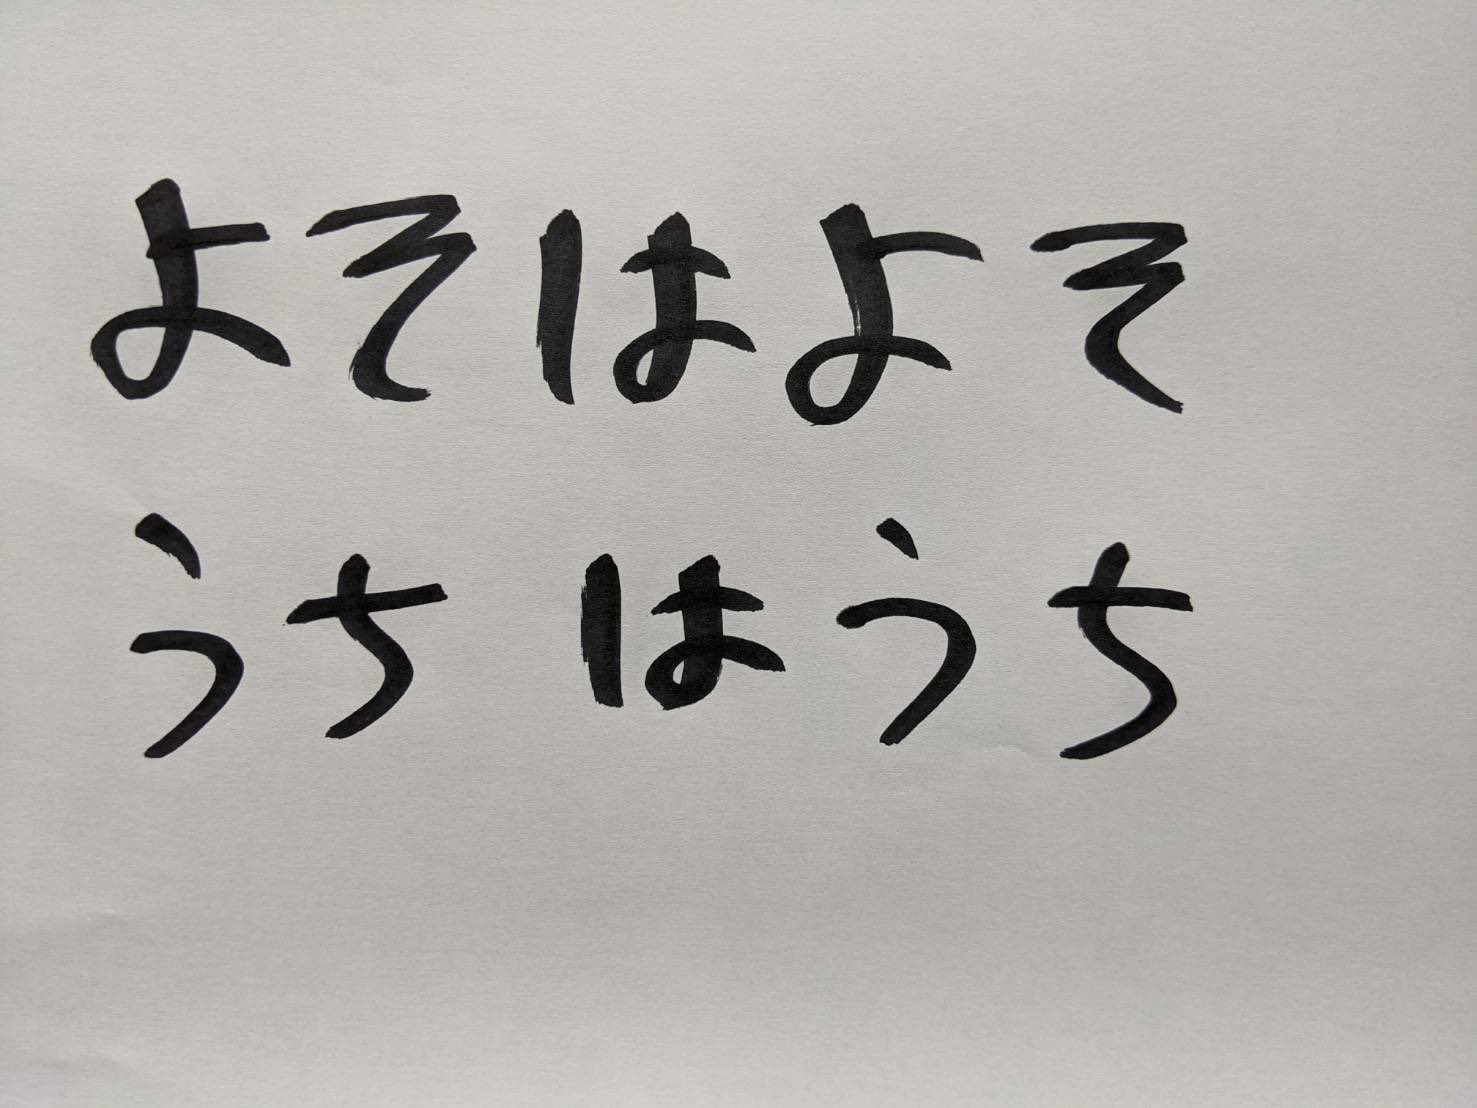 よそはよそ
うちはうち